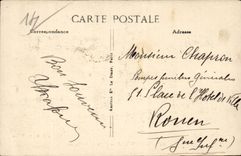 14
CARTE POSTALE
Correspondance
Adresse
Bon Souvenir
Monsieur Chapron
Pompes funèbres Générales
51 Place de l'Hotel de Ville
Rouen
(Sne Infre)